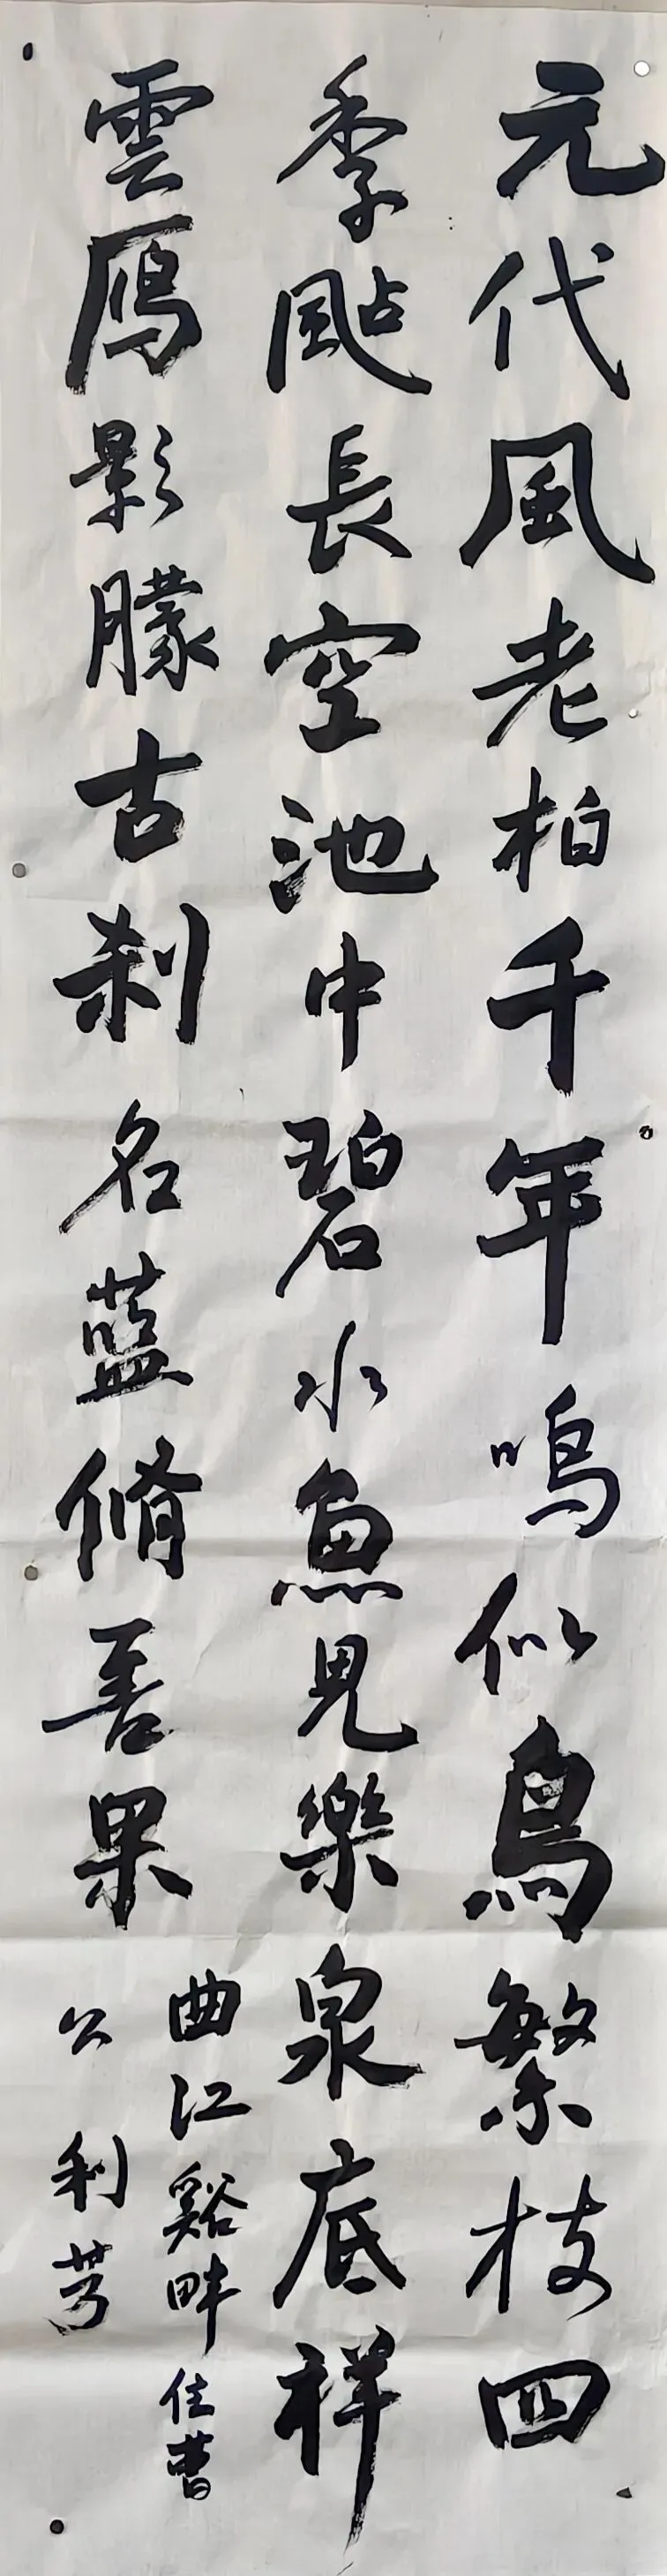 元代風老柏千年鳴似鳥繁枝四
季颭長空池中碧水魚見樂泉底祥
雲鴈影朦古刹名藍脩善果
曲江谿畔住
公利